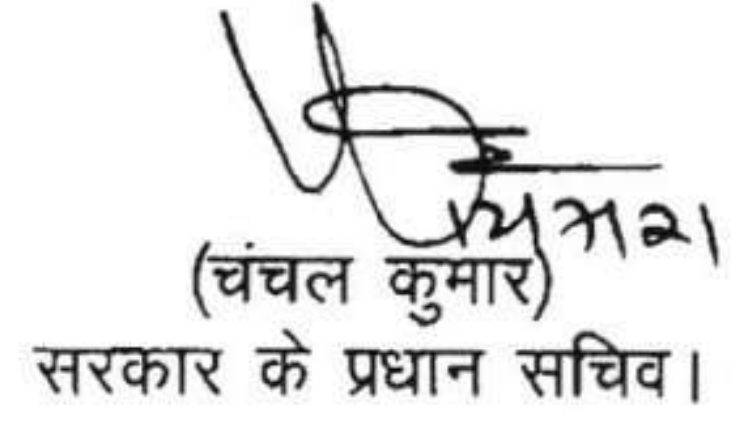 (चंचल कुमार)
सरकार के प्रधान सचिव।